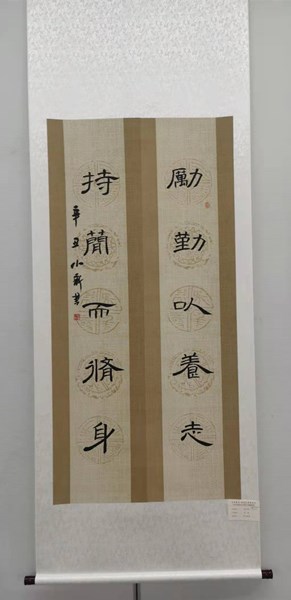 勵勤以養志
持蕳而脩身
辛丑小新書